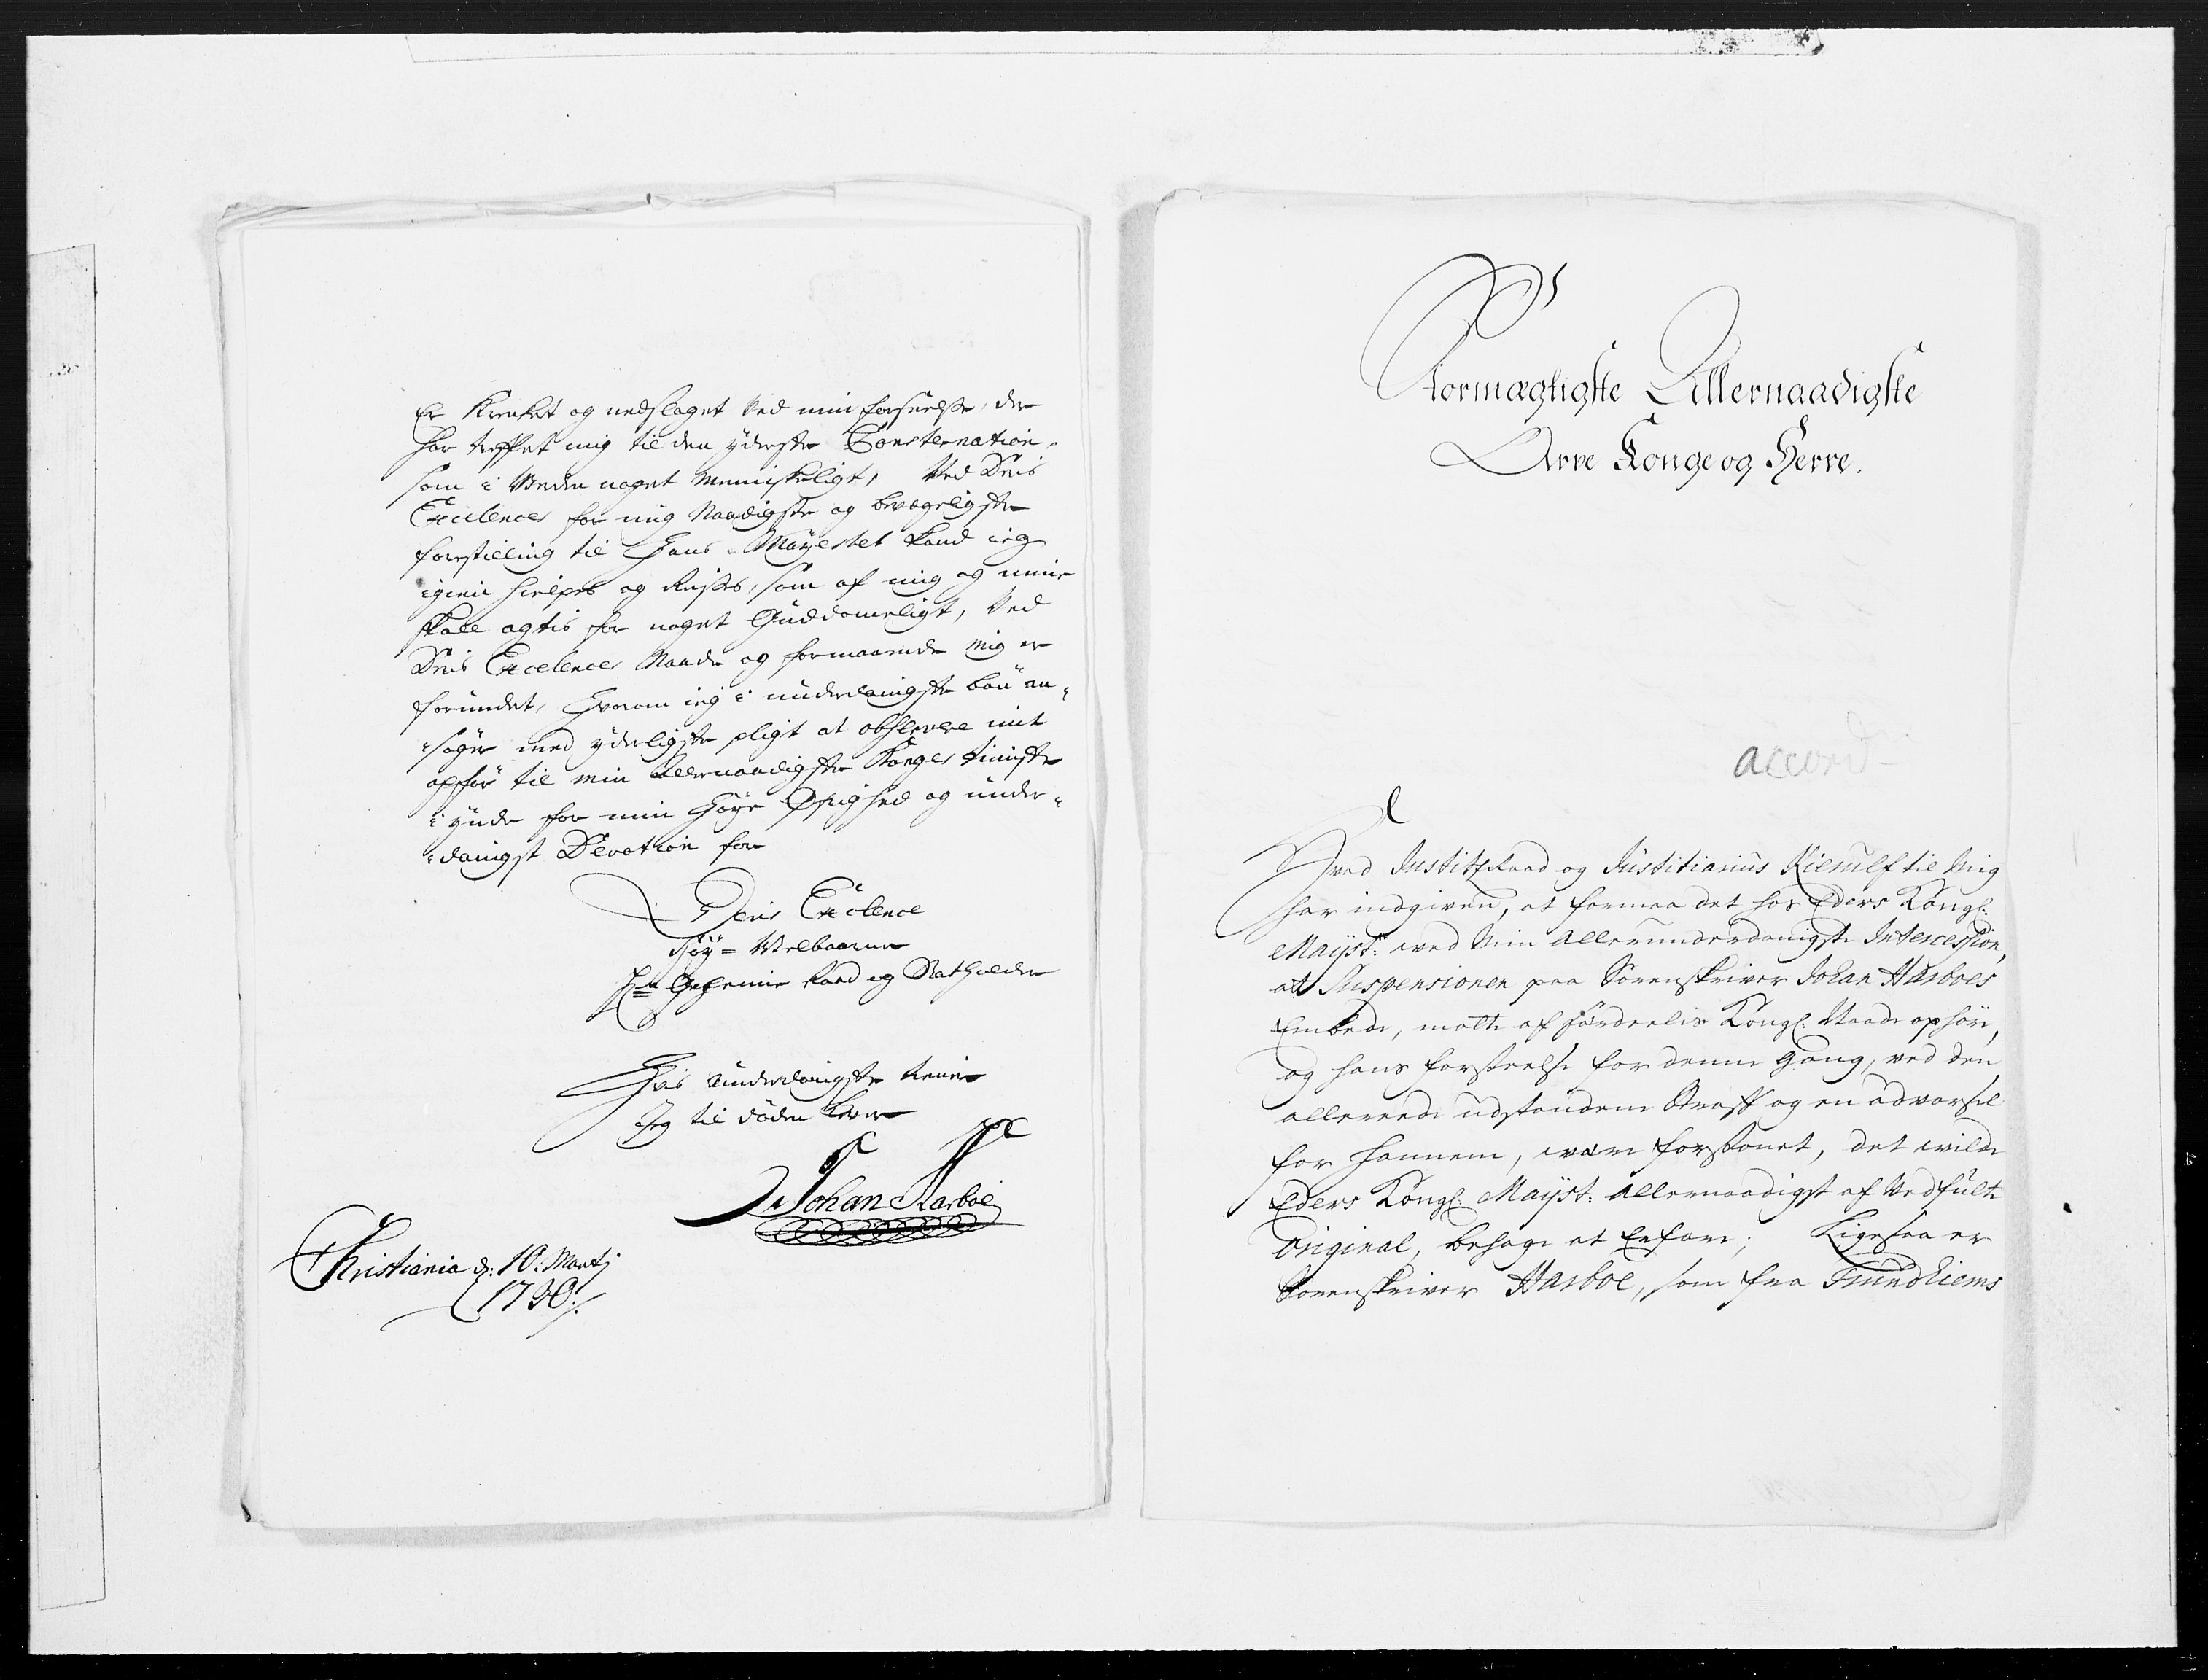 Er Krenket og nedslaget ved min forseelse, der
har treffet mig til den yderste Consternation,
som i Verden noget Menniskeligt, Ved Deris
Excelences for mig Naadigste og bevegeligste
forestilling til Hans Mayestet kand ieg
igien hielpes og Reises, som af mig og mine
skall agtis for noget Guddommeligt, Ved
Deris Excelences Naade og formaaende mig er
forundet, Hvorom ieg i underdanigste bøn an-
søger med yderligste pligt at observere mit
opfør til min Allernaadigste Konges tieniste
i ynde for min Høye Øfrighed og under-
danigst Devotion for
Deris Excelence
Høy-Velbaarne
Hr Geheime Raad og Statholder
Hvis underdanigste tiener
Jeg til døden lever
Johan Harboe
Christiania d: 10. Martj
1730./.
Stormægtigste Allernaadigste
Arve Konge og Herre.
accord
Hvad Justitz Raad og Justitiarius Kierulf til Mig
har indgiven, at formaa det hos Eders Kongl:
Mayst: ved Min Allerunderdanigste Intercession,
at Suspensionen paa Sorenskriver Johan Harboes
Embede, motte af sønderlis Kongl: Naade ophøre,
og hans forseelse for denne gang, ved den
allereede udstandene Straff og en advarsel
for hannem, være forskonet, det wilde
Eders Kongl: Mayst: allernaadigst af Vedfulte
Original, behage at Erfare; Ligesaa er
Sorenskriver Harboe, som fra Trundhiems